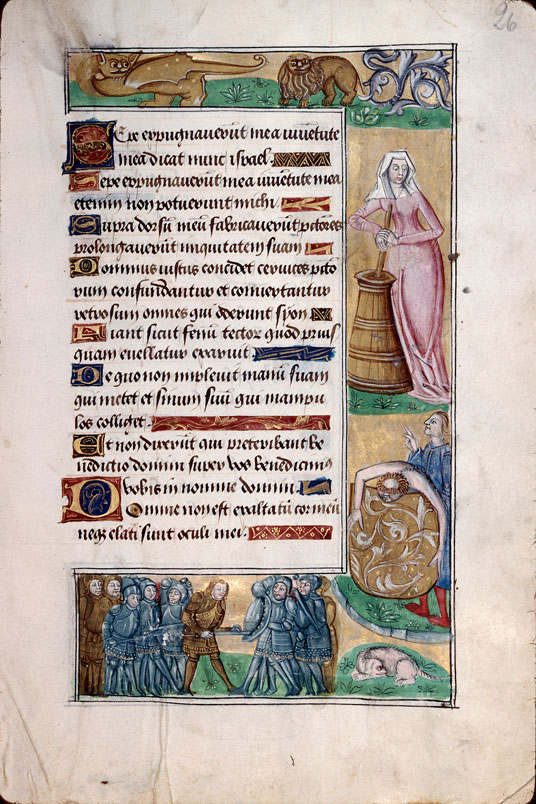 26
Sepe expugnaverūt me a iuvētute
mea dicat nunc israel.
Sepe expugnaverūt me a iuvētute mea
etenim non potuerunt michi
Supra dorsū meū fabricaverūt pctōres
prolongaverūt iniquitatem suam
Dominus iustus concidet cervices pctō
rum confundantur et convertantur
retrorsum omnes qui oderunt syon
Fiant sicut fenū tectorū quod prius
quam evellatur exaruit
De quo non implevit manū suam
qui metet et sinum suū qui manipu
los colliget.
Et non dixerūt qui preteribant be
nedictio domini super vos benediximꝰ
vobis in nomine domini.
Domine non est exaltatū cor meū
neqꝫ elati sunt oculi mei